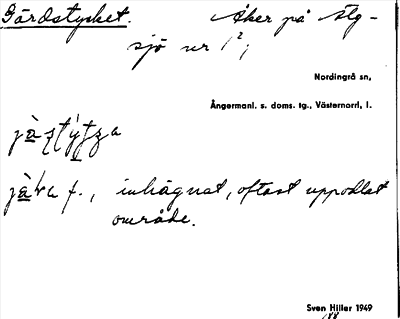 Gärdstycket. Åker på Älg-
sjö nr 1²,
Nordingrå sn,
Ångermanl. s. doms. tg., Västernorrl. l.
f., inhägnat, oftast uppodlat
område.
Sven Hiller 1949